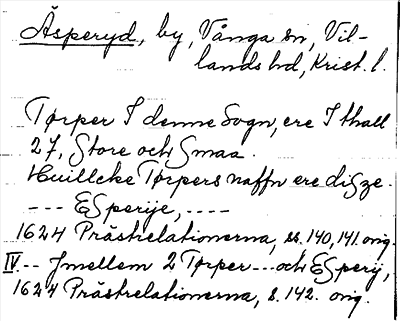 Äsperyd, by, Vånga sn, Vil-
lands hd, Krist. l.
Tørper I denne Sogn, ere I thall
27, Store och Smaa.
Huillcke Tørpers naffn ere diSze.
--- ESperije, ----
1624 Prästrelationerna, ss. 140, 141. orig.
IV -- Jmellem 2 Tørper --- och ESperij,
1624 Prästrelationerna, s. 142. orig.